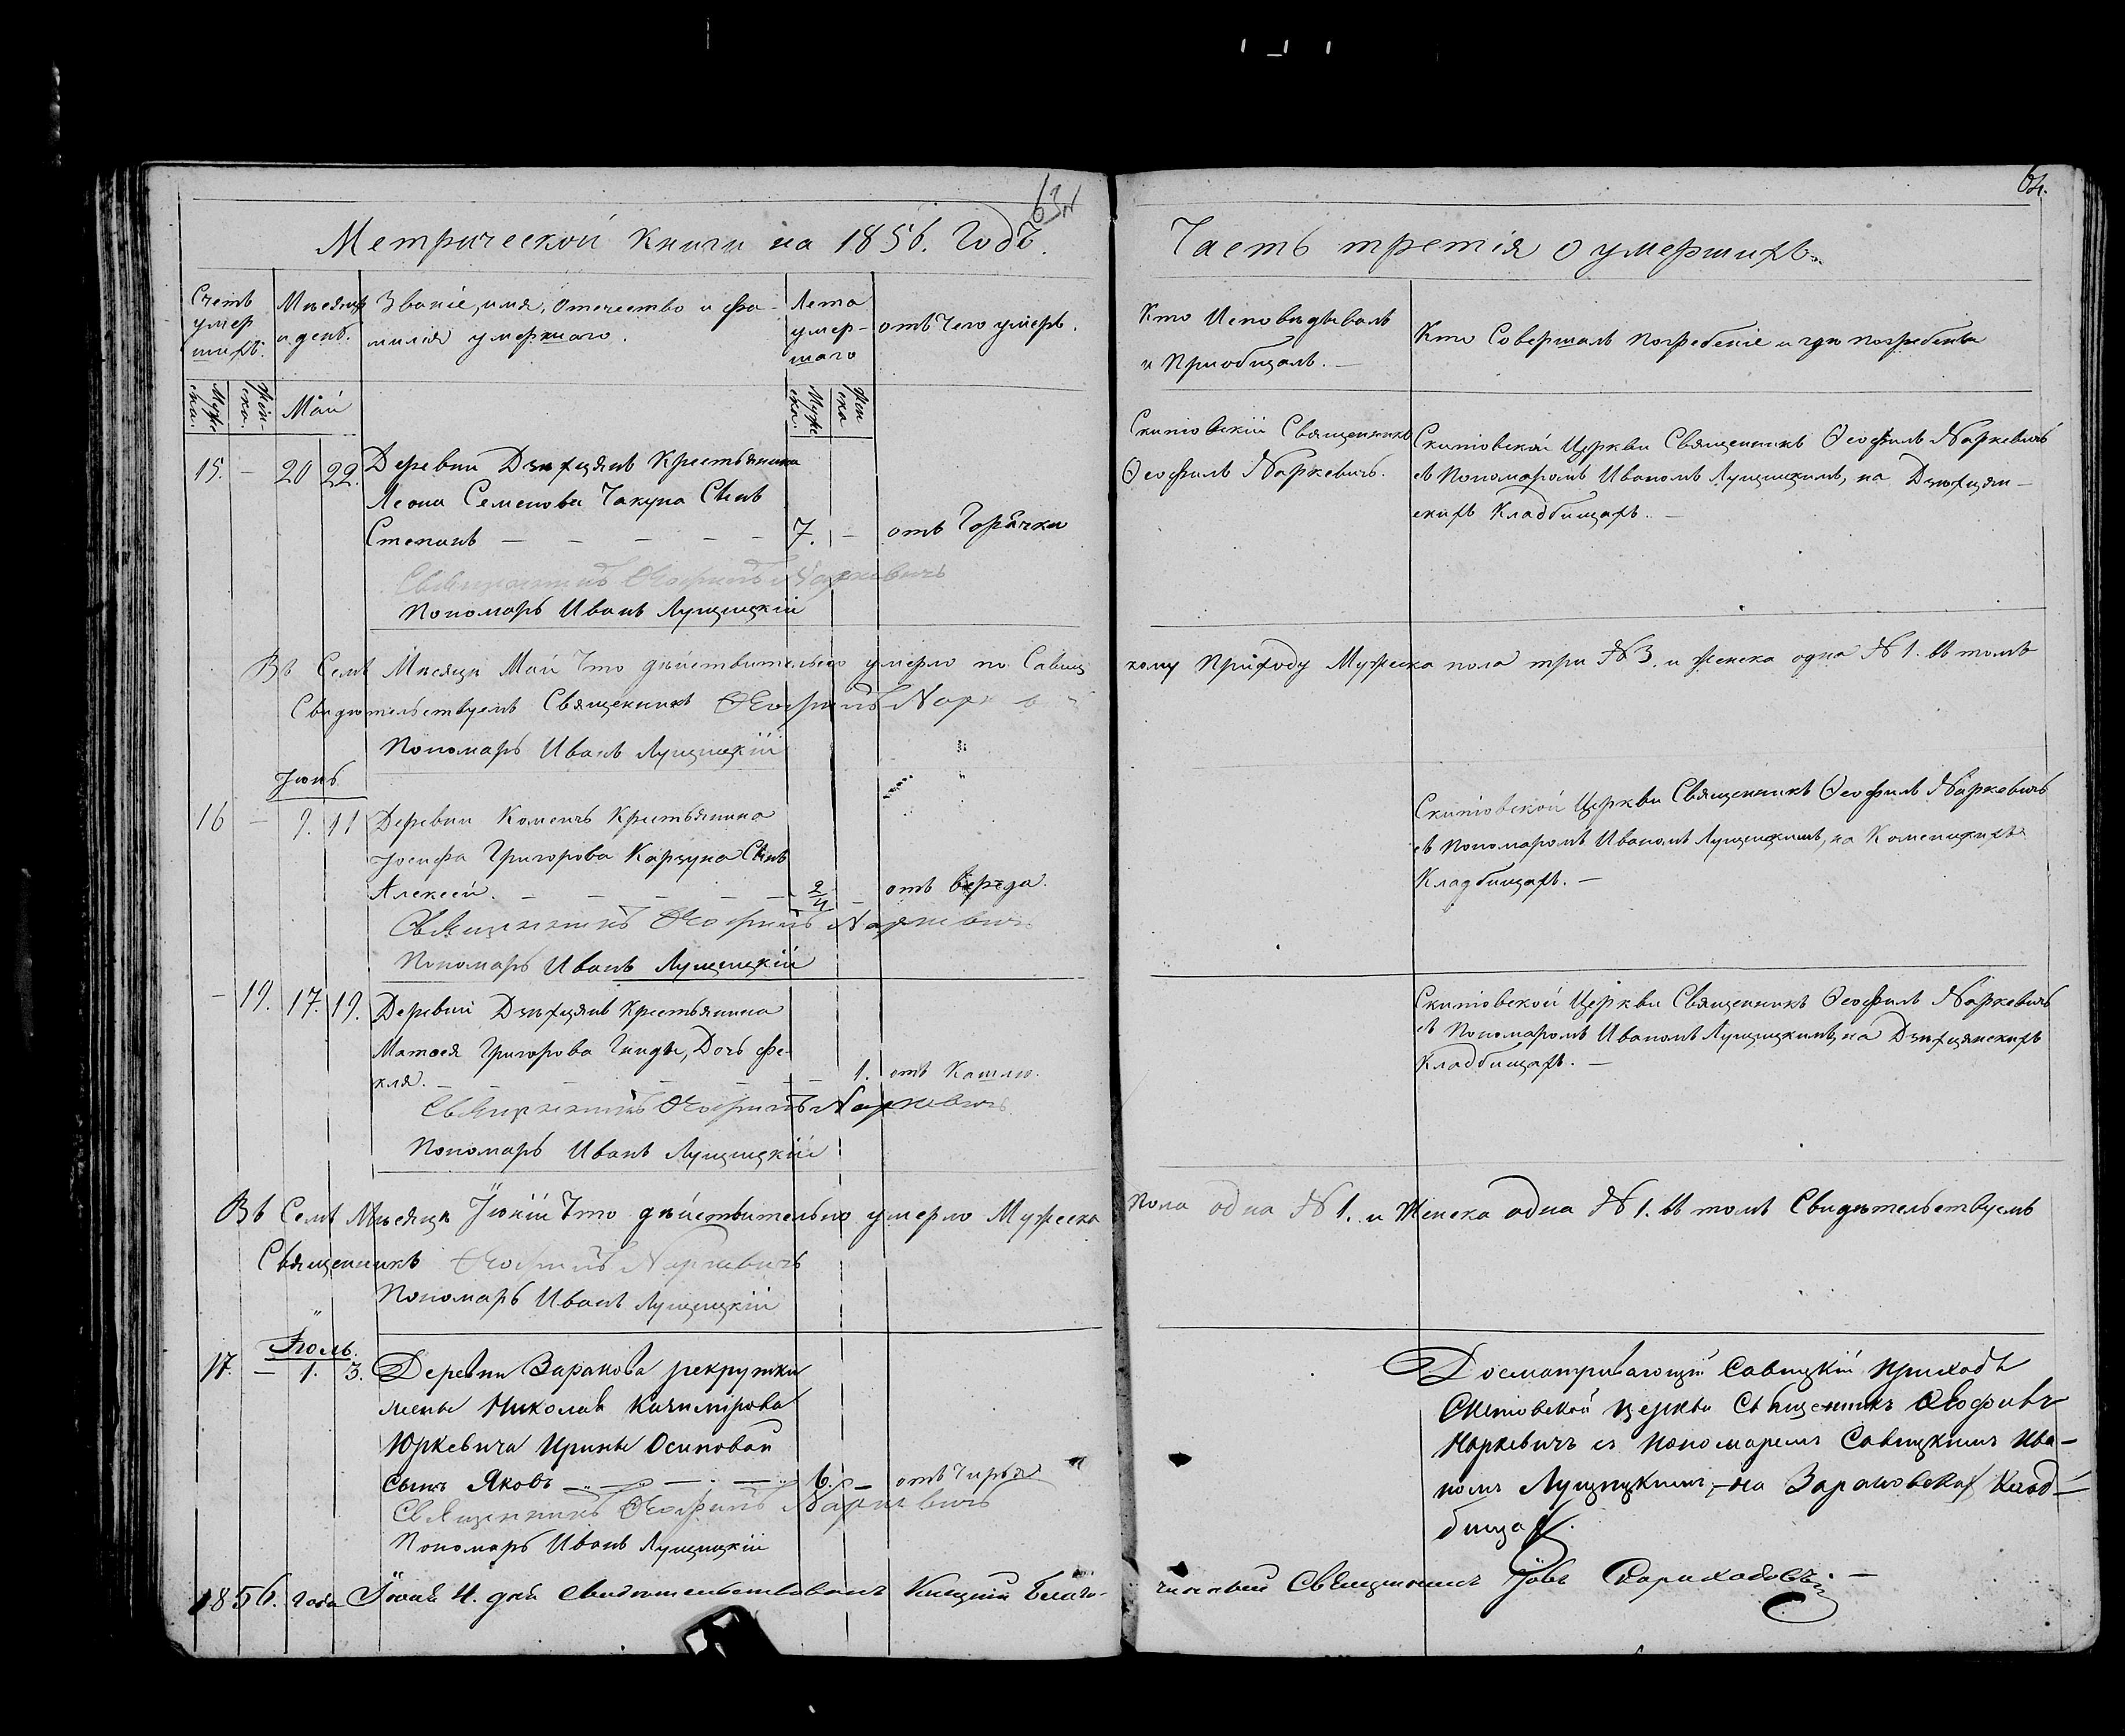 63
64.
Метрической Книги на 1856. Годъ.
Часть третія о умершихъ.
Счетъ умер шихъ.
Мѣсяцъ и день.
Званіе, имя, отечество и фа-
милія умершаго.
Лета умер- шаго
отъ чего умеръ.
Кто Исповѣдывалъ
и Приобщалъ. —
Кто Совершалъ погребеніе и гдѣ погребены
Муже ска.
Жен- ска.
Май
Муже ска.
Жен ска
15. — 20 22. Деревни Дзѣхцянъ Крестьянина
Леона Семенова Чакуна Сынъ
Степанъ — — — — — 7. — отъ Горячки
Священникъ Ѳеофилъ Наркевичъ
Пономаръ Иванъ Лущицкій
Скитовскій Священникъ
Ѳеофилъ Наркевичъ.
Скитовской Церкви Священникъ Ѳеофилъ Наркевичъ
съ Пономаромъ Иваномъ Лущицкимъ, на Дзѣхцян-
скихъ Кладбищахъ. —
Въ Семъ Мѣсяцѣ Май Что дѣйствительно умерло по Савиц
кому Приходу Мужеска пола три № 3. и женска одна № 1. въ томъ
Свидѣтельствуемъ Священникъ Ѳеофилъ Нарк
Пономаръ Иванъ Лущицкій
Іюнь
16 — 9. 11 Деревни Коменъ Крестьянина
Іосифа Григорова Карзуна Сынъ
Алексей. — — — — — 2/4 — отъ вереда.
Священникъ Ѳеофилъ Наркевичъ
Пономаръ Иванъ Лущицкій
Скитовской Церкви Священникъ Ѳеофилъ Наркевичъ
съ Пономаромъ Иваномъ Лущицкимъ, на Коменскихъ
Кладбищахъ. —
— 19. 17. 19. Деревни Дзѣхцянъ Крестьянина
Матоея Григорова Гинды, Дочь Фе-
кля. — — — — — — 1. отъ Кашлю.
Священникъ Ѳеофилъ Наркевичъ
Пономаръ Иванъ Лущицкій
Скитовской Церкви Священникъ Ѳеофилъ Наркевичъ
съ Пономаромъ Иваномъ Лущицкимъ, на Дзѣхцянскихъ
Кладбищахъ. —
Въ Семъ Мѣсяцѣ Іюній Что дѣйствительно умерло Мужеска
пола одна № 1. и Женска одна № 1. въ томъ Свидѣтельствуемъ
Священникъ Ѳеофилъ Наркевичъ
Пономаръ Иванъ Лущицкій
Іюль.
17. — 1. 3. Деревни Заракова рекрутки
жены Николая Казимірова
Юркевича Ирины Осиповой
сынъ Яковъ — — — 6. — отъ Чирья
Священникъ Ѳеофилъ Наркевичъ
Пономаръ Иванъ Лущицкій
Досматривающій Савицкій приходъ
Скитовской церкви Священникъ Ѳеофилъ
Наркевичъ съ пономаремъ Савицкимъ Ива-
номъ Лущицкимъ, — на Зараковскихъ Клад-
бищахъ.
1856. года Іюля 4. дня Свидѣтельствовалъ Благо-
чинный Священникъ Іовъ